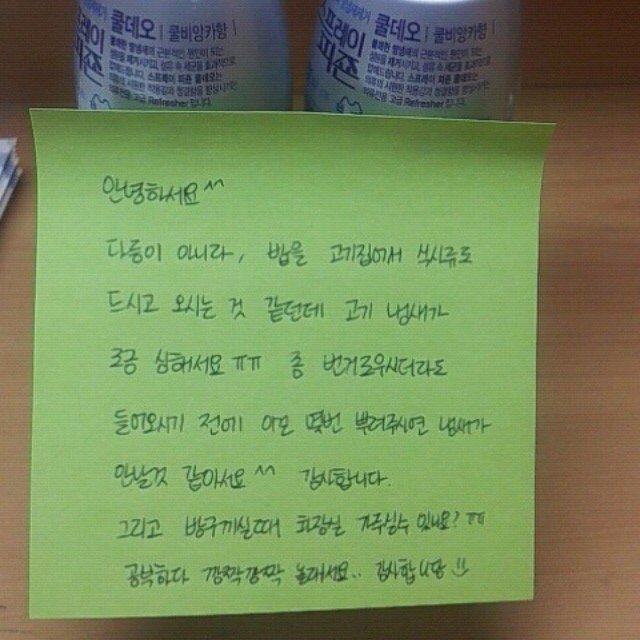 쿨데오 | 쿨비앙카향
스프레이
피죤
고급 Refresher 입니다.
쿨데오 | 쿨비앙카향
스프레이
피죤
의류전용 고급 Refresher 입니다.
안녕하세요^^
다름이 아니라, 밥을 고기집에서 식사류로
드시고 오시는 것 같던데 고기 냄새가
조금 심해서요 ㅠㅠ 좀 번거로우시더라도
들어오시기 전에 이오 몇번 뿌려주시면 냄새가
안날것 같아서요^^ 감사합니다.
그리고 방구끼실때 화장실 가주실수 있나요? ㅠㅠ
공부하다 깜짝깜짝 놀래서요.. 감사합니당